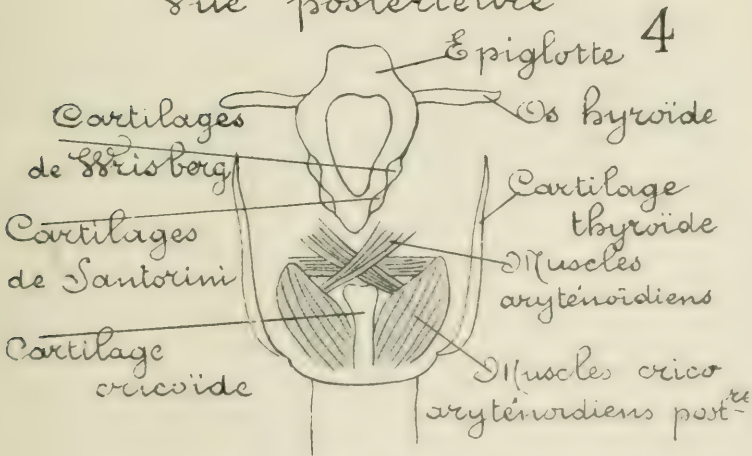 Vue postérieure
4
Epiglotte
Os hyroïde
Cartilages
de Wrisberg
Cartilage
thyroïde
Cartilages
de Santorini
Muscles
aryténoïdiens
Cartilage
cricoïde
Muscles crico
aryténoïdiens post.re